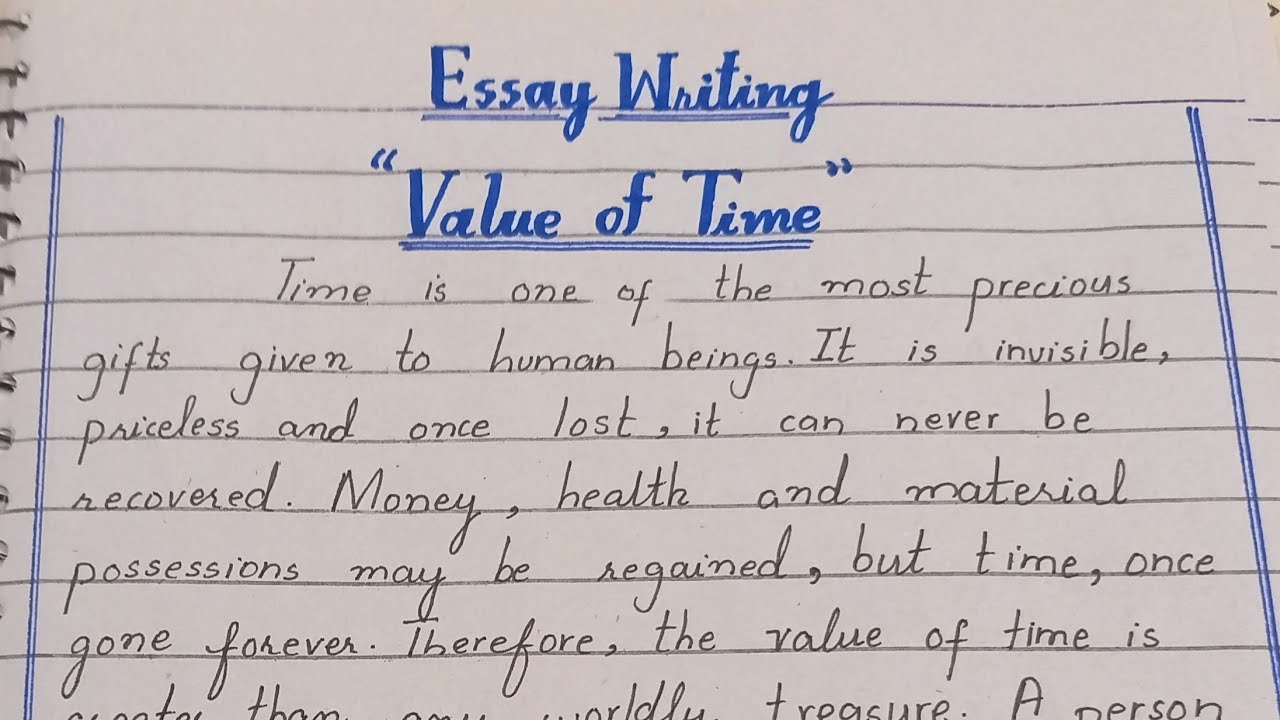 Essay Writing
"Value of Time"
Time is one of the most precious
gifts given to human beings. It is invisible,
priceless and once lost, it can never be
recovered. Money, health and material
possessions may be regained, but time, once
gone forever. Therefore, the value of time is
greater than any worldly treasure. A person